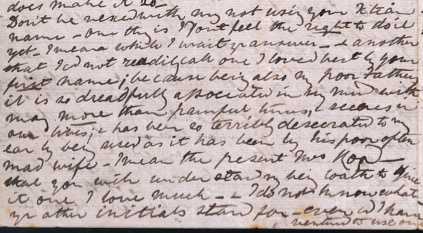 does make it so.
Don't be vexed with my not using your Xtian
name - One thg is I don't feel the right to do it
yet - I mean while I wait yr answer - & another
that I cd not readily call one I loved best by your
first name; because being also my poor father's
it is so dreadfully associated in my mind with
many more than painful times, & scenes in
our lives; & has been so terribly desecrated to my
ear by being used as it has been by his poor often
mad wife - I mean the present Mrs
that you will understand my being loath to give
it one I love much - & I do not know what
yr other initials stand for - even if I have
ventured to use one